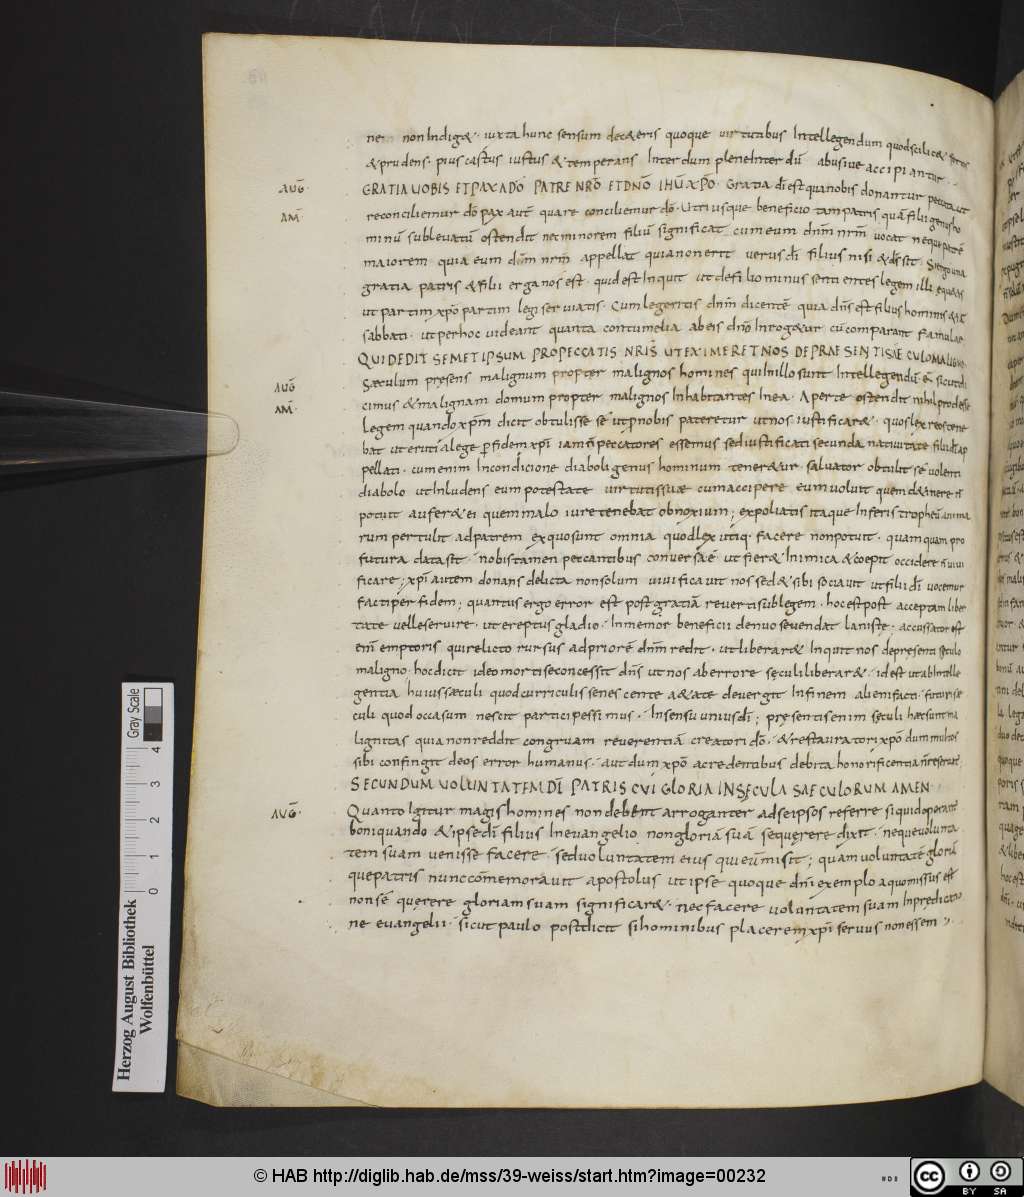 ne non Indig& · iuxta hunc sensum dec&eris quoque uirtutibus Intellegendum quod scilic& fortis
& prudens · pius castus iustus & temperans Interdum plene Interdū abusiue accipiantur ·
AUG̅ · GRATIA UOBIS ET PAX A DŌ PATRE NRŌ ET DNŌ IHŪ XPŌ · Gratia dī est qua nobis donantur peccata ut
AM̅ reconciliemur dō pax aut̄ qua reconciliemur dō · Utriusque beneficio tam patris quā filii genus ho
minū subleuatū ostendit nec minorem filiū significat cum eum dnm̄ nrm̄ uocat neque patrē
maiorem quia eum dm̄ nrm̄ appellat quia non erit uerus dī filius nisi & ds̄ sit · S ergo una
gratia patris & filii erga nos est · quid est Inquit ut de filio minus sentientes legem illi equ&is
ut partim xpō partim legi seruiatis · Cum legeritis dnm̄ dicentē quia dn̄s est filius hominis &iā
sabbati · ut per hoc uideant quanta contumelia ab eis dnō Inrog&ur cū comparant famulae
QUI DEDIT SEMETIPSUM PRO PECCATIS NRIS̄ UT EXIMERET NOS DE PRAESENTI SAECULO MALIGNO
AUG̅ Saeculum pręsens malignum propter malignos homines qui In illo sunt Intellegendū ē sicut di
AM̅ · cimus & malignam domum propter malignos Inhabitantes In ea · Aperte ostendit nihil prodesse
legem quando xpm̄ dicit obtulisse se ut p nobis pateretur ut nos iustificar& · quos lex reos tene
bat ut eruti a lege p fidem xpī iam n̄ peccatores essemus sed iustificati secunda natiuitate filii dī ap
pellati · cum enim In condicione diaboli genus hominum tener&ur saluator obtulit se uolenti
diabolo ut Inludens eum potestate uirtutis suae cum accipere eum uoluit quem d&inere n̄
potuit aufer& ei quem malo iure tenebat obnoxium ; expoliatis itaque Inferis tropheū anima
rum pertulit ad patrem ex quo sunt omnia quod lex utiq· facere non potuit · quamquam pro
futura data sit · nobis tamen peccantibus conuersa ē · ut fier& Inimica & coepit occidere n̄ uiui
ficare ; xpī autem donans delicta non solum uiuificauit nos sed & sibi sociauit ut filii dī uocemur
facti per fidem ; quantus ergo error est post gratiā reuerti sub legem · hoc est post acceptam liber
tate uelle seruire · ut ereptus gladio · Inmemor beneficii denuo se uendat laniste · accussator est
eni͞ emptoris qui relicto rursus ad priorē dnm̄ redit · ut liberar& Inquit nos de presenti sęculo
maligno · hoc dicit ideo morti se concessit dn̄s ut nos ab errore sęculi liberar& · id est ut ab Intelle
gentia huius sæculi quod curriculis senescente a&ate deuergit In finem alieni facti · futuri sę
culi quod occasum nescit participes simus · In sensu unius dī ; pręsentis enim sęculi haec sunt ma
lignitas quia non reddit congruam reuerentiā creatori dō · & restauratori xpō dum multos
sibi confingit deos error humanus · aut dum xpō a credentibus debita honorificentia n̄ reseruatur ·
SECUNDUM UOLUNTATEM DĪ PATRIS CUI GLORIA IN SĘCULA SAECULORUM AMEN ·
AUG̅ · Quanto Igitur magis homines non debent arroganter ad se ipsos referre si quid operantr̄
boni quando & ipse dī filius In euangelio non gloriā suā se quęrere dixit · neque uolunta
tem suam uenisse facere · sed uoluntatem eius qui eū misit ; quam uoluntatē gloriā
que patris nunc cōmemorauit apostolus ut ipse quoque dn̄i exemplo a quo missus est
non sē quęrere gloriam suam significar& · nec facere uoluntatem suam In prędicatio
ne euangelii · sicut paulo post dicit si hominibus placerem xpī seruus non essem ·
Herzog August Bibliothek
Wolfenbüttel
0 1 2 3 4
Gray Scale
© HAB http://diglib.hab.de/mss/39-weiss/start.htm?image=00232
CC BY SA